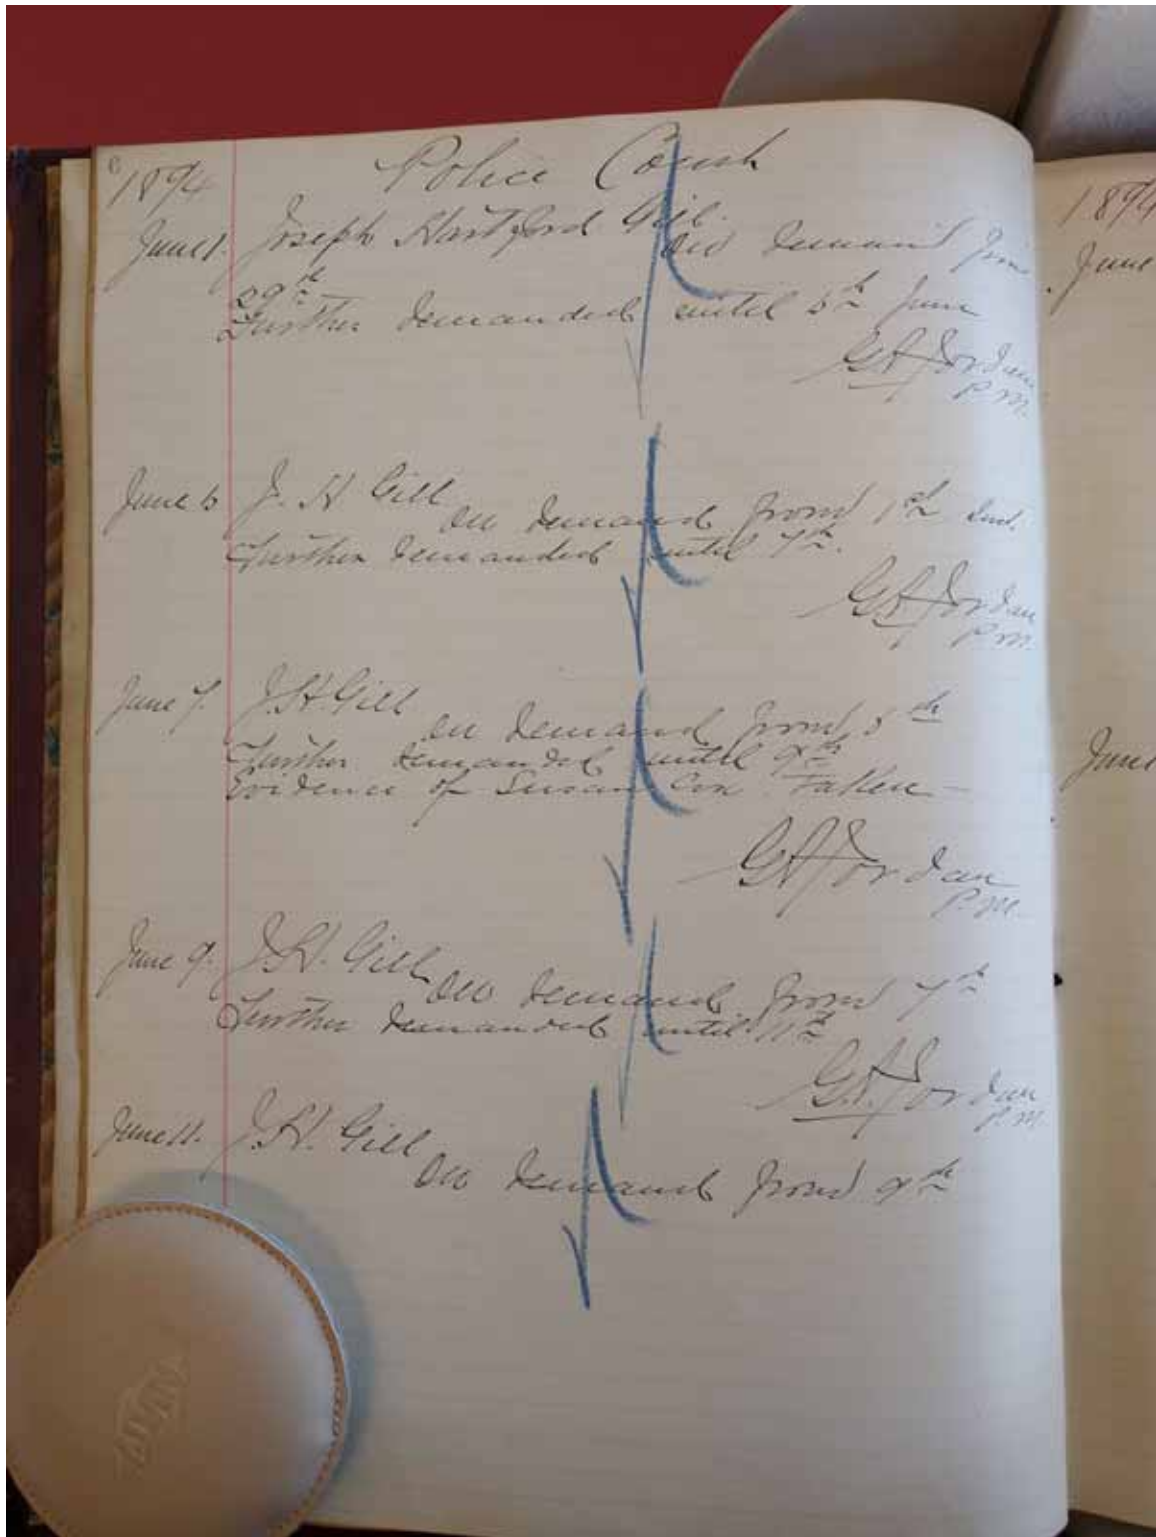 6
1894 Police Court
June 1. Joseph Hartford Gill.
On remand from
29th
Further remanded until 5th June
G A Jordan
P.M.
June 5 J. H Gill
On remand from 1st Inst.
Further remanded until 7th.
G A Jordan
P.M.
June 7. J. H Gill
On remand from 5th
Further remanded until 9th
Evidence of Susan Cox Taken
G A Jordan
P.M.
June 9. J. H. Gill
On remand from 7th
Further remanded until 11th
G. A. Jordan
P.M.
June 11. J. H. Gill
On remand from 9th
1894
June
June